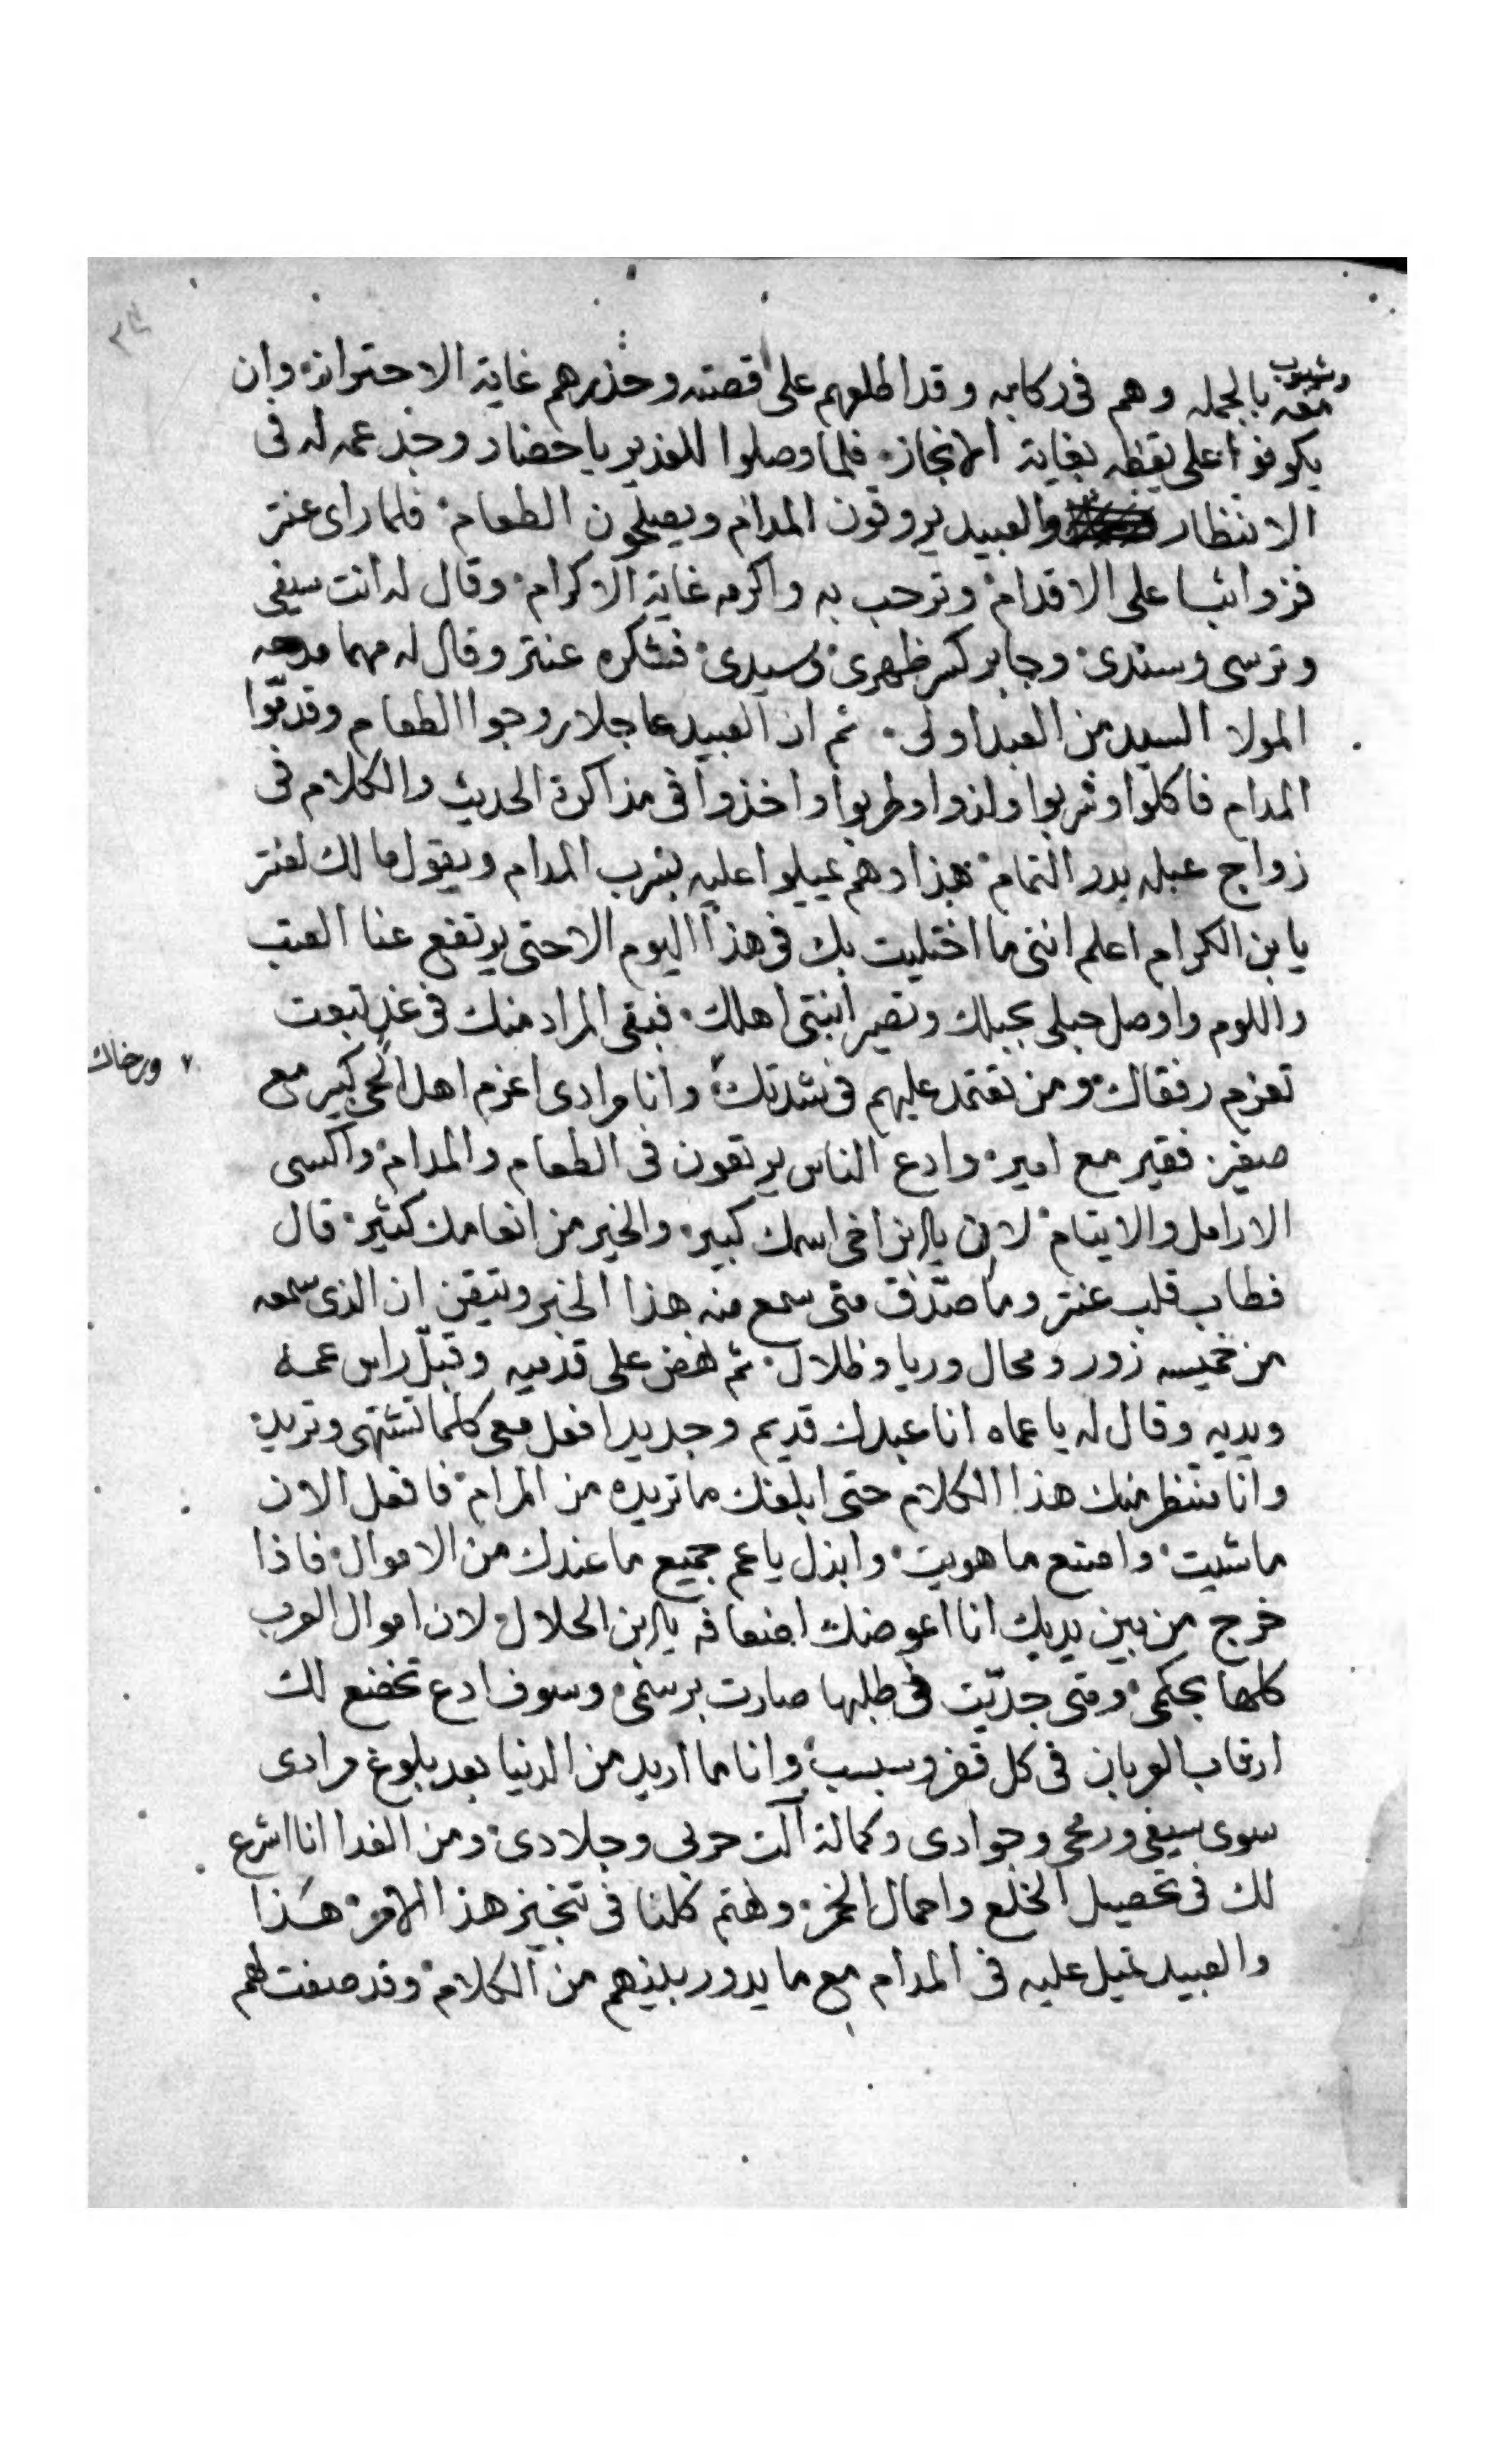 وشيبوب معه بالجمله وهم في ركابه وقد اطلعهم على قصته وحذرهم غاية الاحتراز وان
يكونوا على يقظه بغاية الانجاز فلما وصلوا للغدير يا حضار وجد عمه له في
الانتظار والعبيد يروقون المدام ويصلحون الطعام فلما راى عنتر
فز واثبا على الاقدام وترحب به واكرمه غاية الاكرام وقال له انت سيفي
وترسي وسندي وجابر كسر ظهري وسيدي فشكره عنتر وقال له مهما مدحه
المولا السيد من العبد اولى ثم ان العبيد عاجلا روجوا الطعام وقدموا
المدام فاكلوا وشربوا ولذوا وطربوا واخذوا في مذاكرة الحديث والكلام في
زواج عبله بدر التمام هذا وهم يميلوا عليه بشرب المدام ويقول مالك لعنتر
يا بن الكرام اعلم انني ما اختليت بك في هذا اليوم الا حتى يرتفع عنا العتب
واللوم واوصل حبلي بحبلك وتصير ابنتي اهلك فبقى المراد منك في غد تبعت
تعزم رفقاك ومن تعتمد عليهم في شدتك ورخاك وانا مرادي اعزم اهل الحي كبير مع
صغير فقير مع امير وادع الناس يرتعون في الطعام والمدام واكسي
الارامل والايتام لان يا بن اخي اسمك كبير والخير من انعامك كثير قال
فطاب قلب عنتر وما صدق متى سمع منه هذا الخبر وتيقن ان الذي سمعه
من خميسه زور ومحال وريا وظلال ثم نهض على قدميه وقبل راس عمه
ويديه وقال له يا عماه انا عبدك قديم وجديد افعل معي كلما تشتهي وتريد
وانا منتظر منك هذا الكلام حتى ابلغك ما تريده من المرام فافعل الان
ما شيت واصنع ما هويت وابذل يا عم جميع ما عندك من الاموال فاذا
خرج من بين يديك انا اعوضك اضعافه يا بن الحلال لان اموال العرب
كلها بحكمي ومتى جديت في طلبها صارت برسمي وسوف ادع تخضع لك
ارقاب العربان في كل قفر وسبسب وانا ما اريد من الدنيا بعد بلوغ مرادي
سوى سيفي ورمحي وجوادي وكمالة آلت حربي وجلادي ومن الغد انا اشرع
لك في تحصيل الخلع واحمال الخمر ونهتم كلنا في تنجيز هذا الامر هذا
والعبيد تميل عليه في المدام مع ما يدور بينهم من الكلام وقد صفت لهم